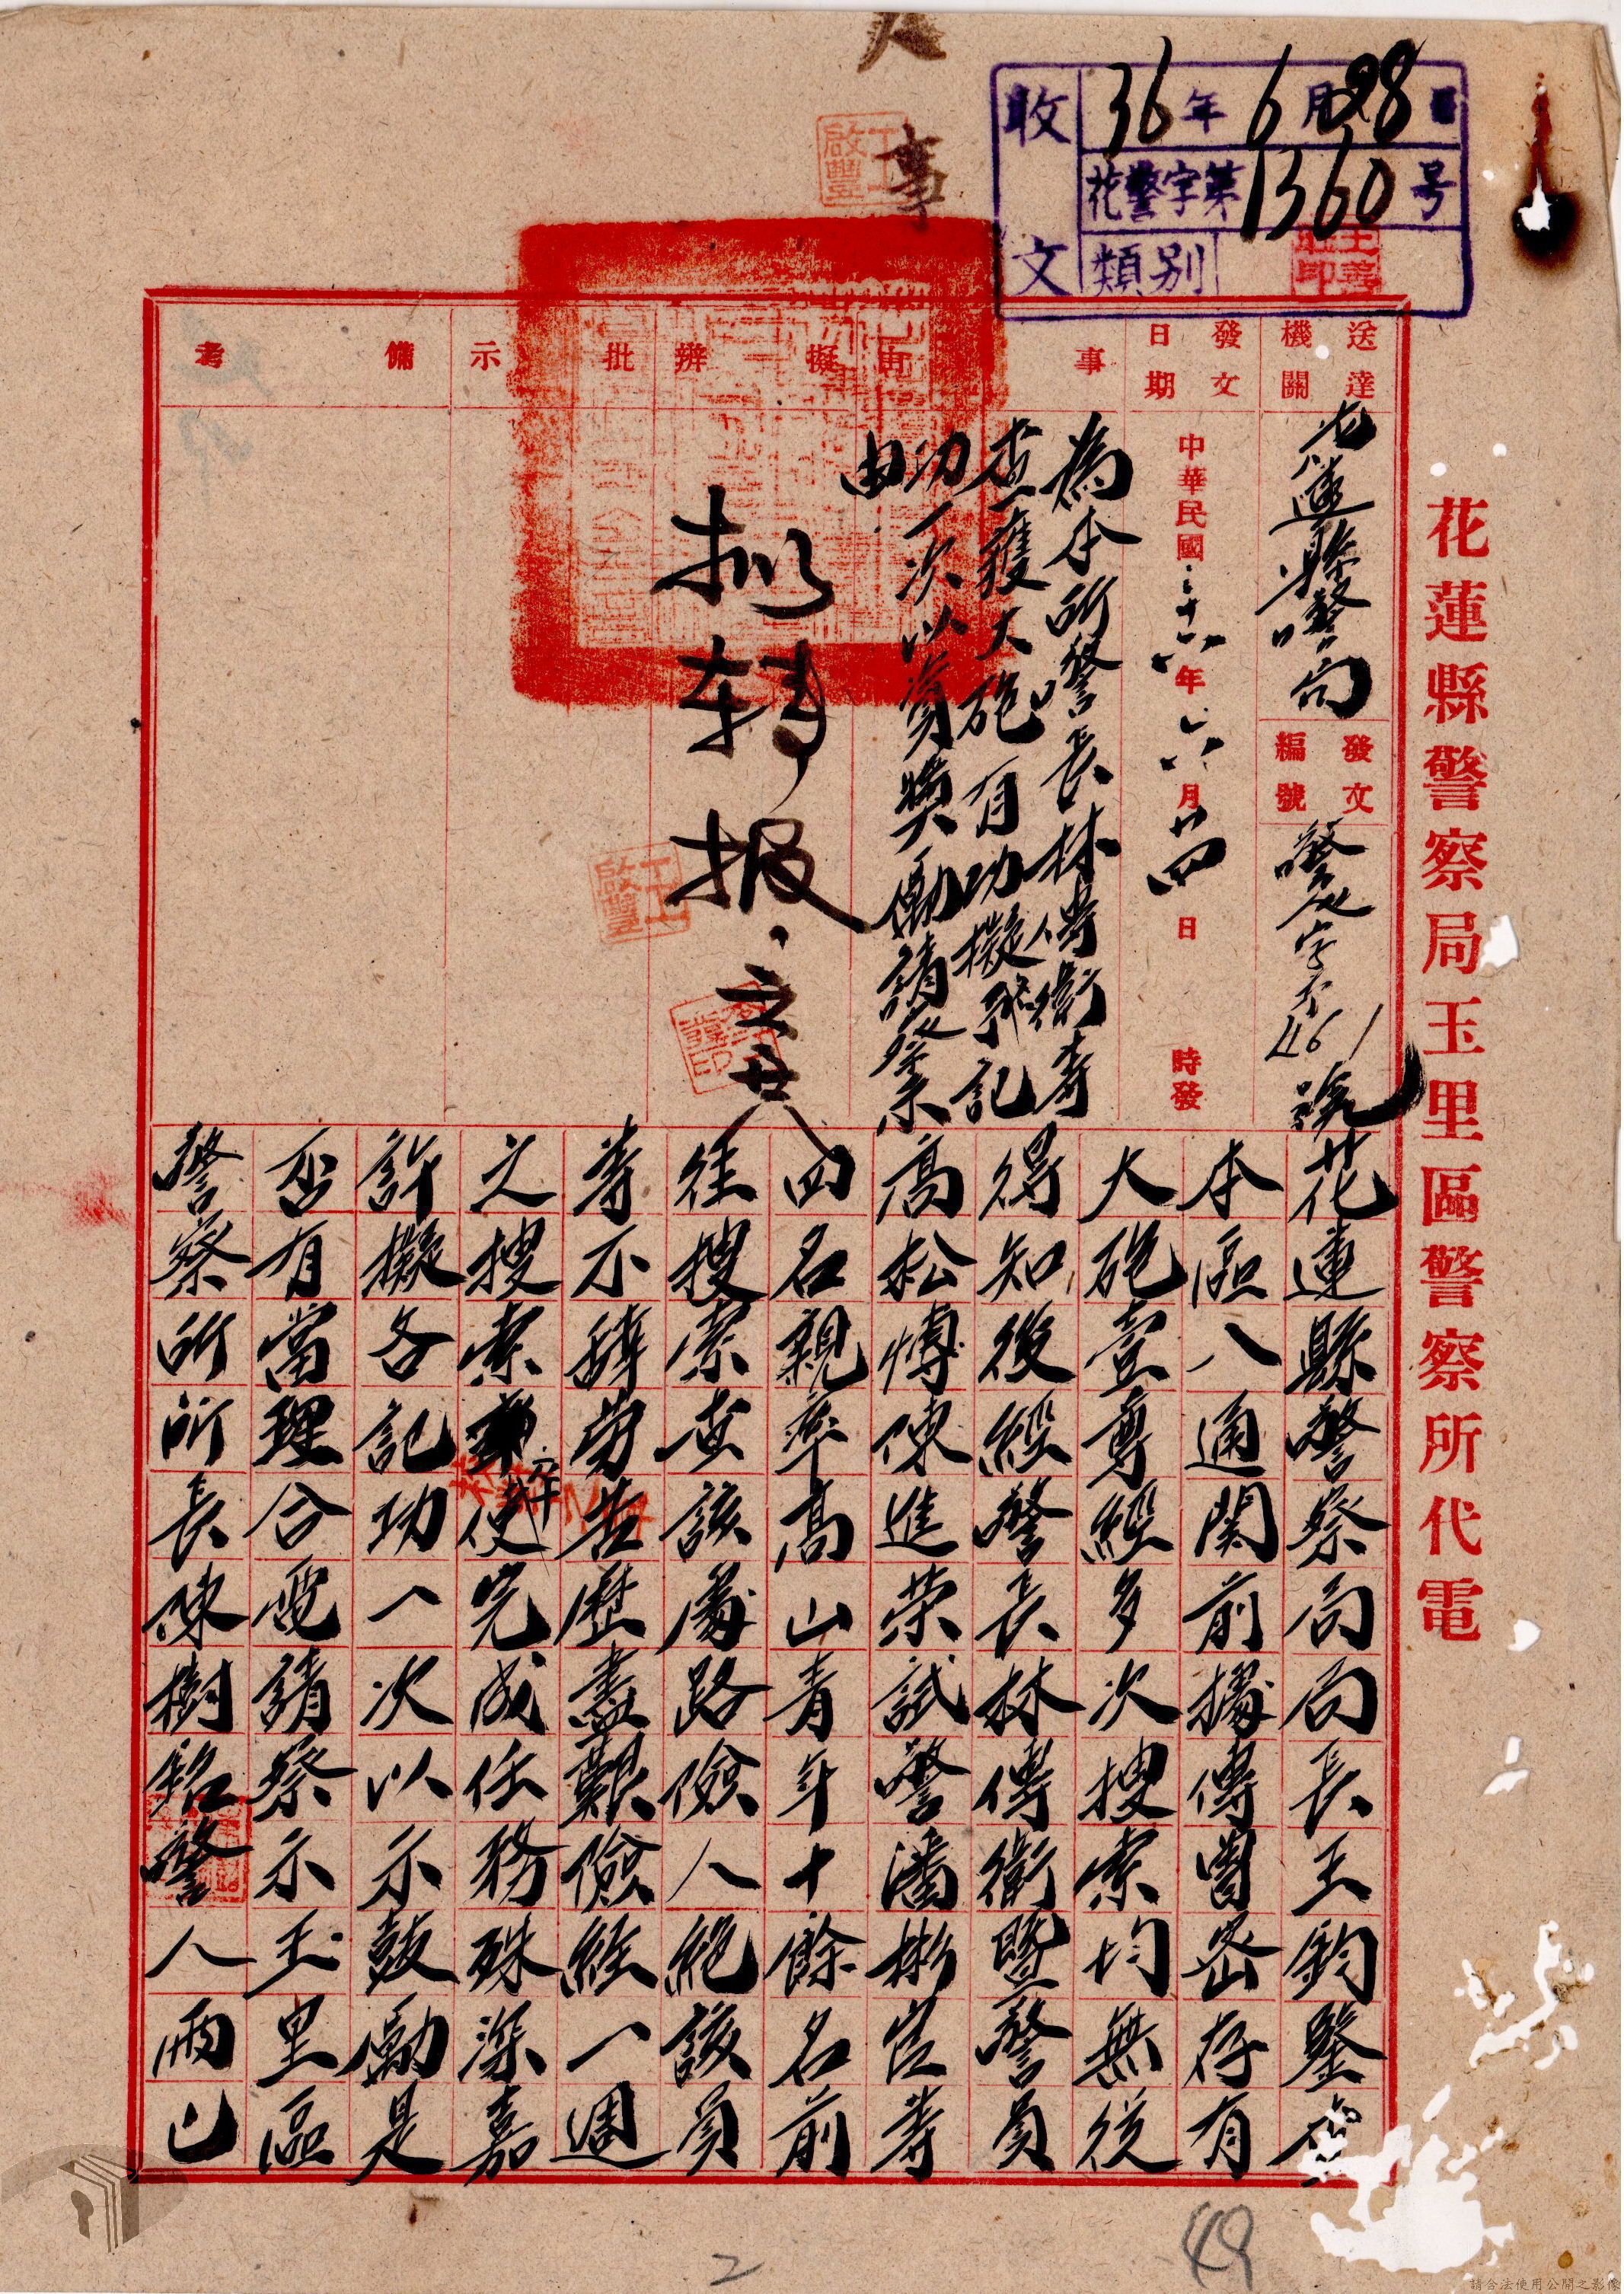 收文
36年6月28日
花警字第1360号
類別
花蓮縣警察局玉里區警察所代電
送達機關
花蓮縣警察局
發文編號
461號
發文日期
中華民國三十六年六月廿四日 時發
事由
為本所警長林傳衛等
查獲大砲有功擬予記
功一次以資獎勵請察
由
擬辦
擬轉報
批示
備考
花蓮縣警察局局長王鈞鑒
本區八通関前據傳曾密存有
大砲壹尊經多次搜索均無從
得知後經警長林傳衛暨警員
高松 陳進荣試警潘 等
四名親率高山青年十餘名前
往搜索查該處路險人絕該員
等不辞劳苦歷盡艱險經一週
之搜索卒使完成任務殊深嘉
許擬各記功一次以示鼓勵是
否有當理合電請察示玉里區
警察所所長陳樹銘警人 巳
2
49
請合法使用公開之影像